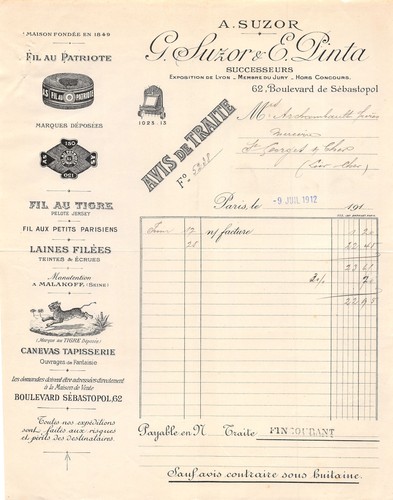 MAISON FONDÉE EN 1849
FIL AU PATRIOTE
FIL AU PATRIOTE
MARQUES DÉPOSÉES
150
150
FIL AU TIGRE
PELOTE JERSEY
FIL AUX PETITS PARISIENS
LAINES FILÉES
TEINTES & ÉCRUES
Manutention
A MALAKOFF (SEINE)
(Marque au TIGRE Déposée)
CANEVAS TAPISSERIE
Ouvrages de Fantaisie
Les demandes doivent être adressées directement
à la Maison de Vente
BOULEVARD SÉBASTOPOL, 62
Toutes nos expéditions
sont faites aux risques
et périls des destinataires.
A. SUZOR
G. Suzor & E. Pinta
SUCCESSEURS
EXPOSITION DE LYON _ MEMBRE DU JURY _ HORS CONCOURS.
62, Boulevard de Sébastopol
1025.13
AVIS DE TRAITE
Fo. 5238
Mrs Archambault frères
Merciers
St Georges s/ Cher
(Loir Cher)
Paris, le 9 JUIL 1912 191
17 n/ facture
28 22 45
3%
22 05
Payable en N Traite FIN COURANT
Sauf avis contraire sous huitaine.